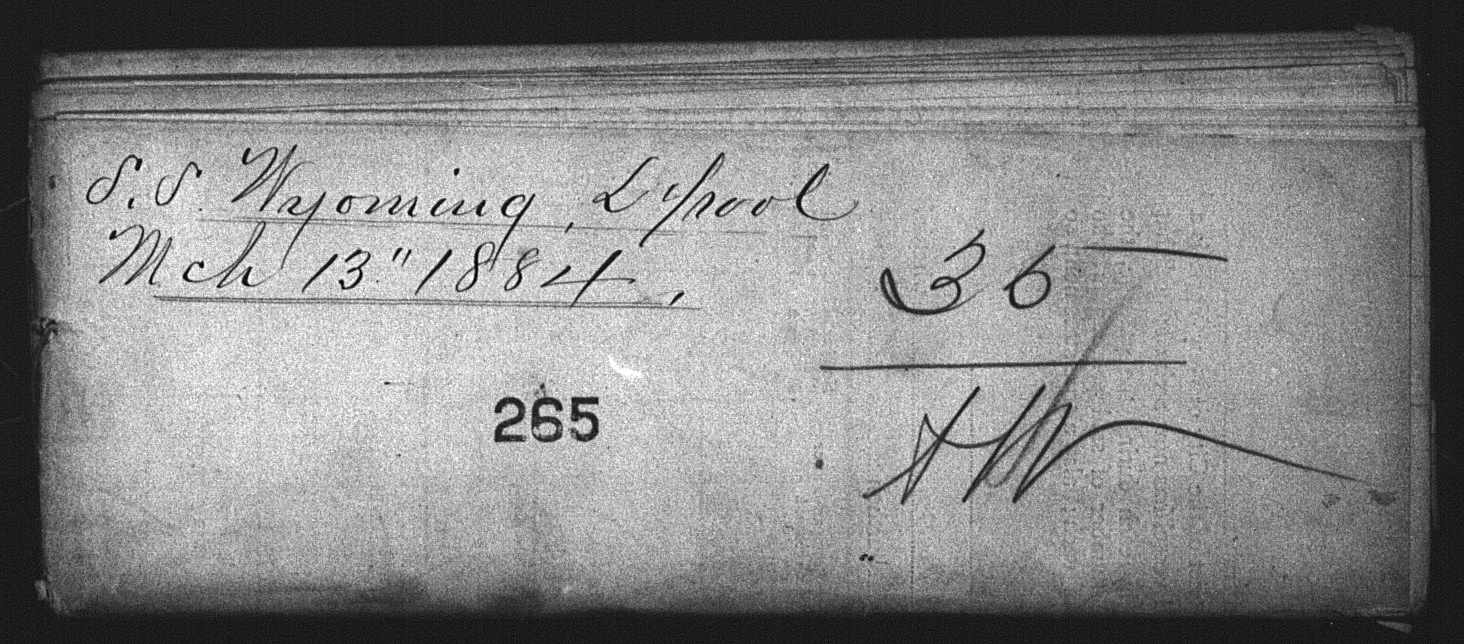 S.S. Wyoming, L'pool
Mch 13" 1884,
35
265